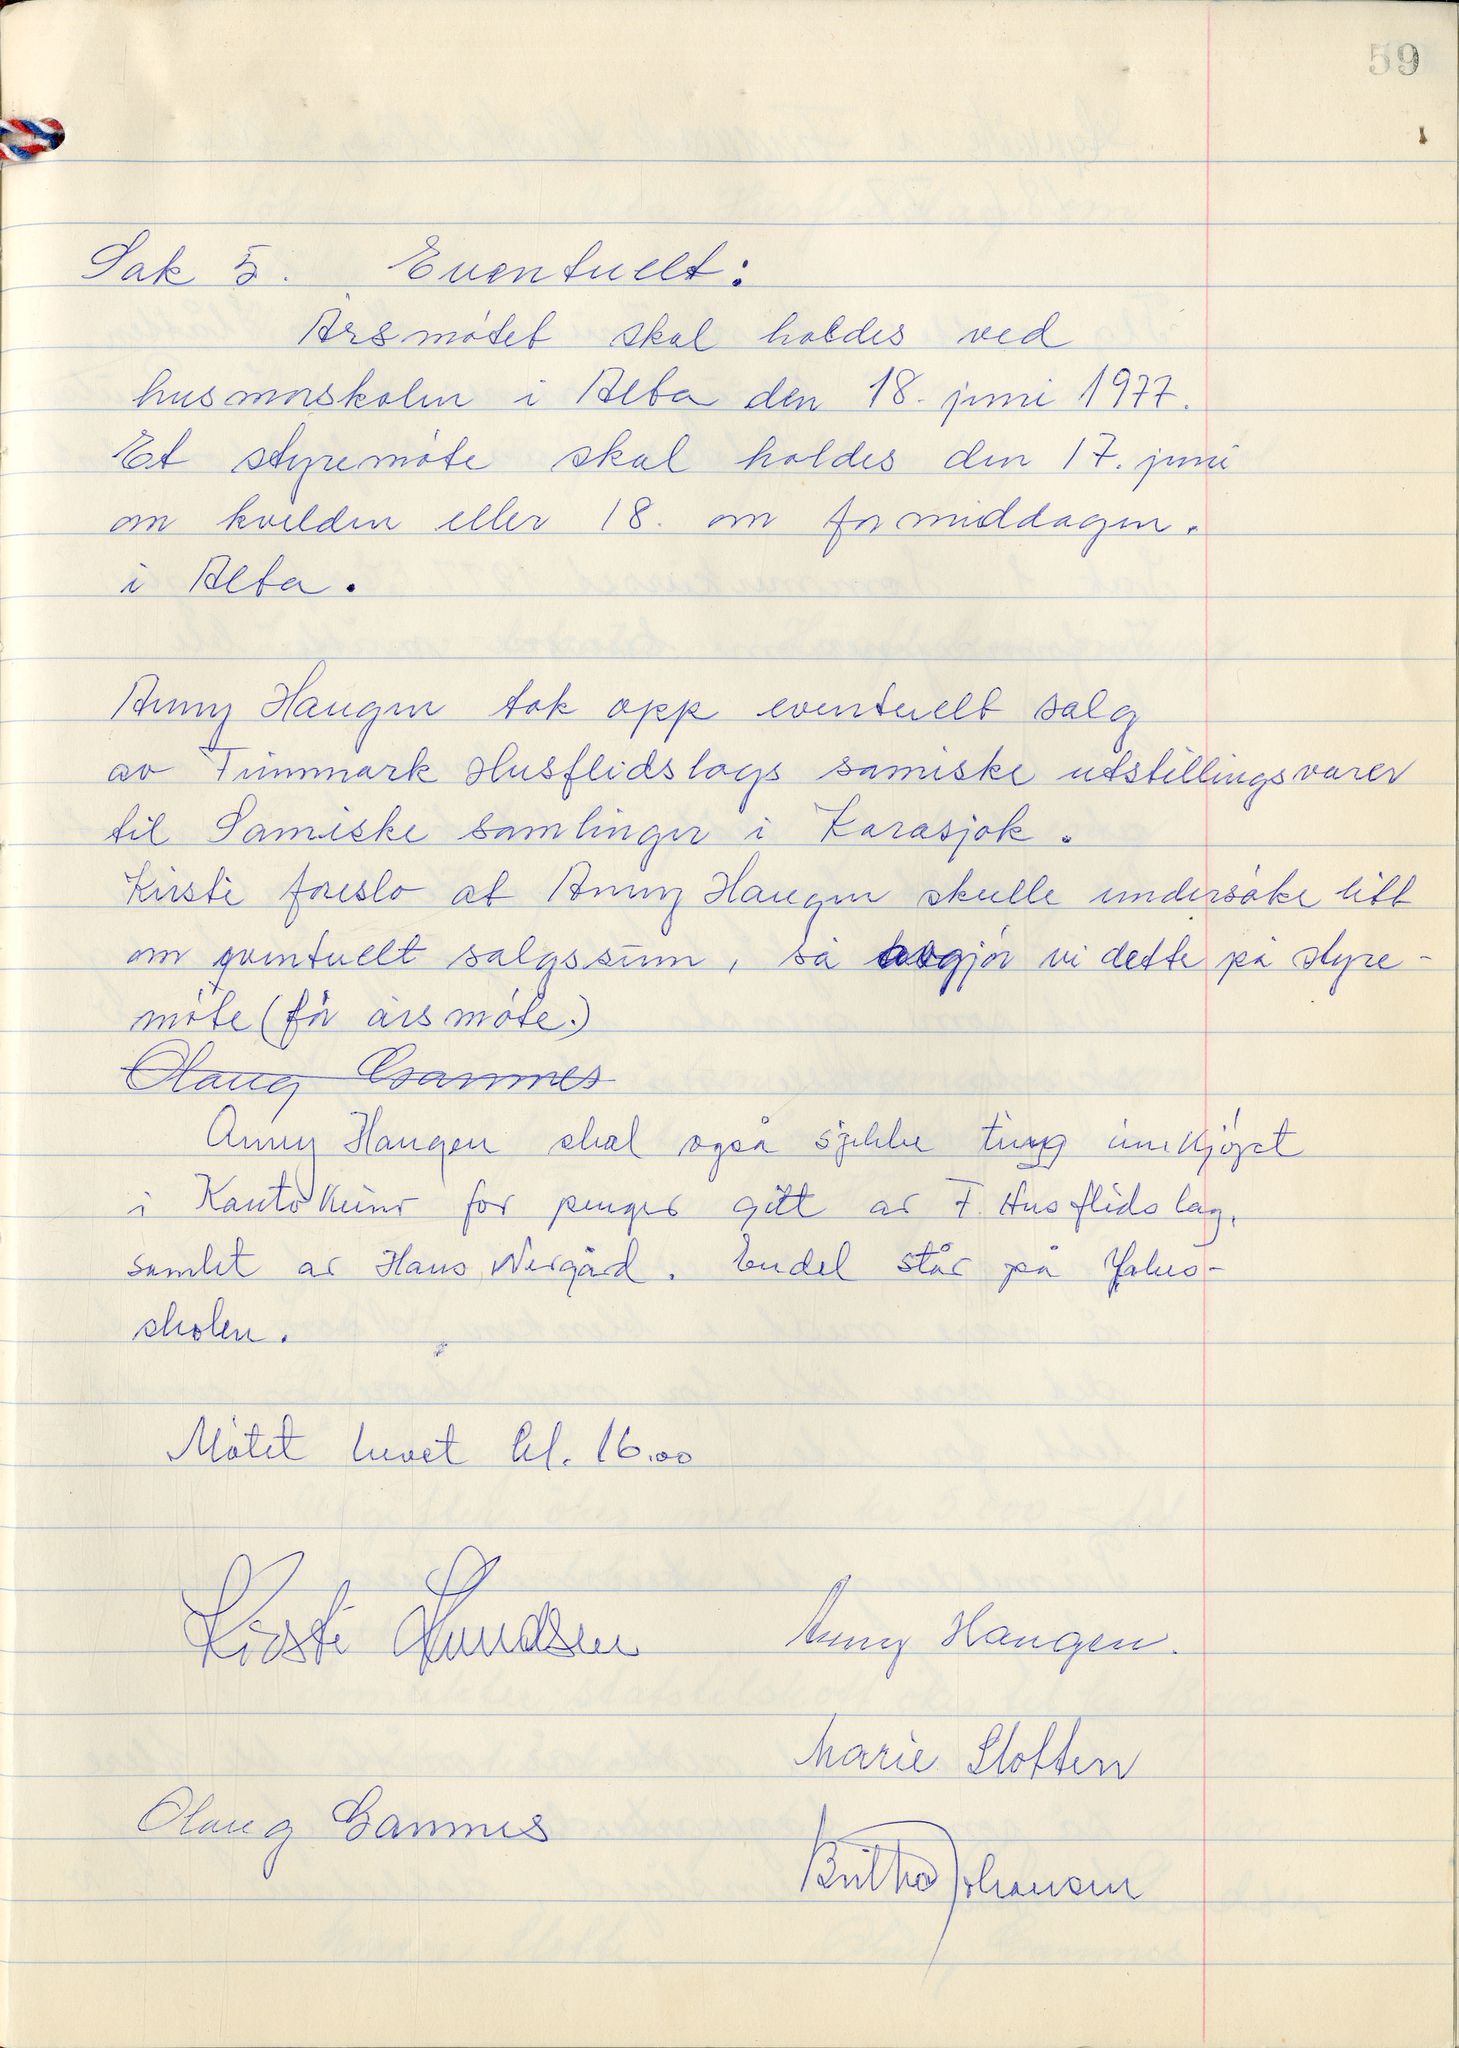 59
Sak 5. Eventuelt:
Årsmøtet skal holdes ved
husmorskolen i Alta den 18. juni 1977.
Et styremøte skal holdes den 17. juni
om kvelden eller 18. om formiddagen.
i Alta.
Anny Haugen tok opp eventuelt salg
av Finnmark Husflidslags samiske utstillingsvarer
til Samiske samlinger i Karasjok.
Kirsti foreslo at Anny Haugen skulle undersøke litt
om eventuelt salgssum, så avgjør vi dette på styre-
møte (før årsmøte.)
Olaug Gamnes
Anny Haugen skal også sjekke ting innkjøpt
i Kautokeino for penger gitt av F. Husflidslag,
samlet av Hans Nergård. Endel står på Yrkes-
skolen.
Møtet hevet kl. 16.00
Kirsti Knudsen Anny Haugen.
Marie Slotten
Olaug Gamnes
Britha Johansen